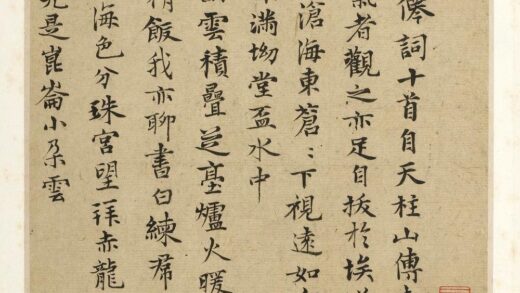 俸詞十首自天柱山傳
者觀之亦足自拔於埃
滄海東蒼〻下視遠如
滿坳堂盃水中
雲積疊芝臺爐火暖
飯我亦聊書白練帬
海色分珠宮望拜赤龍
是崑崙小朶雲